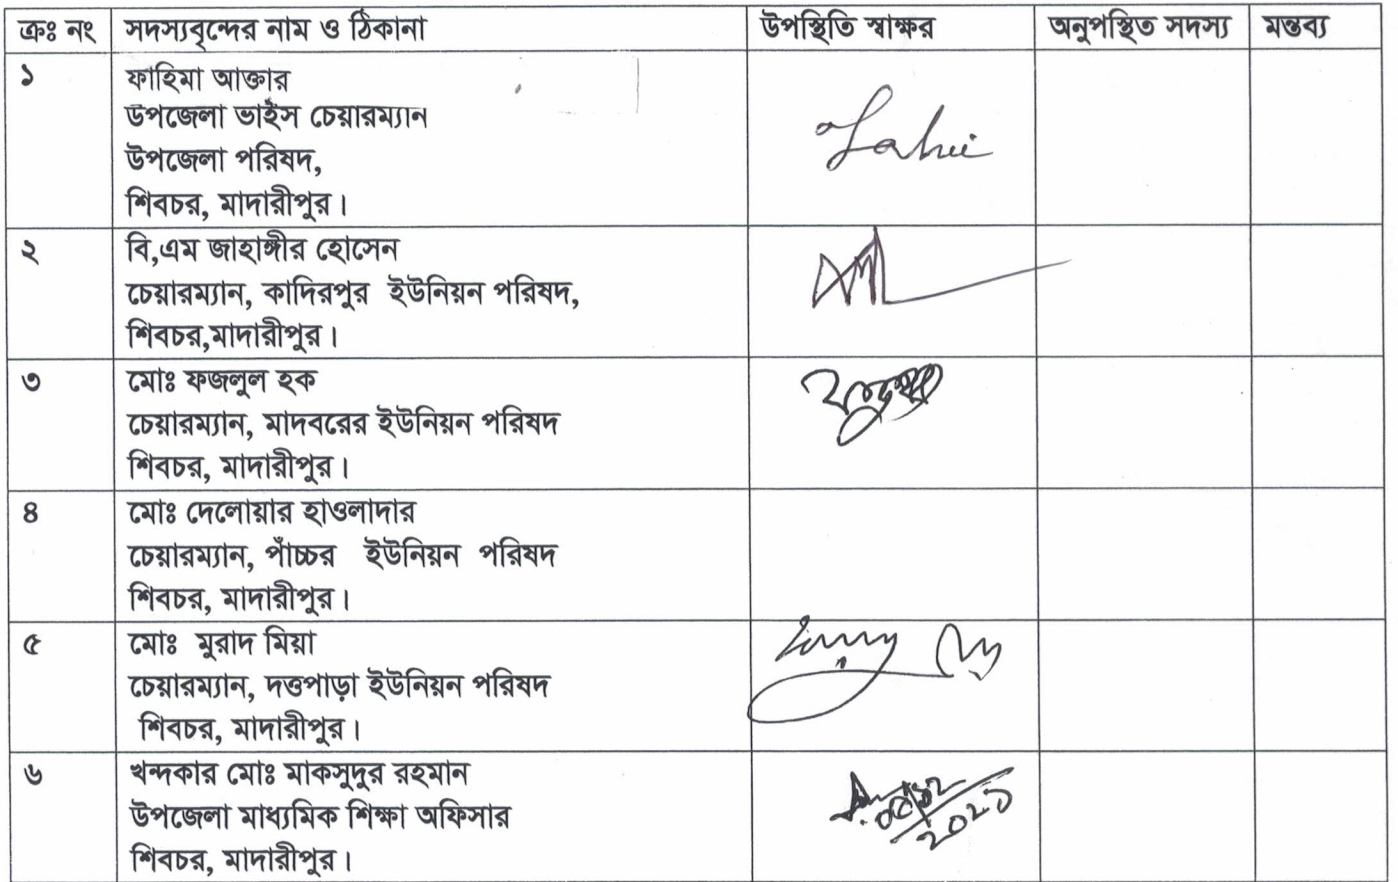 ক্রঃ নং সদস্যবৃন্দের নাম ও ঠিকানা উপস্থিতি স্বাক্ষর অনুপস্থিত সদস্য মন্তব্য
১ ফাহিমা আক্তার
উপজেলা ভাইস চেয়ারম্যান
উপজেলা পরিষদ,
শিবচর, মাদারীপুর।
২ বি,এম জাহাঙ্গীর হোসেন
চেয়ারম্যান, কাদিরপুর ইউনিয়ন পরিষদ,
শিবচর,মাদারীপুর।
৩ মোঃ ফজলুল হক
চেয়ারম্যান, মাদবরের ইউনিয়ন পরিষদ
শিবচর, মাদারীপুর।
৪ মোঃ দেলোয়ার হাওলাদার
চেয়ারম্যান, পাঁচ্চর ইউনিয়ন পরিষদ
শিবচর, মাদারীপুর।
৫ মোঃ মুরাদ মিয়া
চেয়ারম্যান, দত্তপাড়া ইউনিয়ন পরিষদ
শিবচর, মাদারীপুর।
৬ খন্দকার মোঃ মাকসুদুর রহমান
উপজেলা মাধ্যমিক শিক্ষা অফিসার
শিবচর, মাদারীপুর।